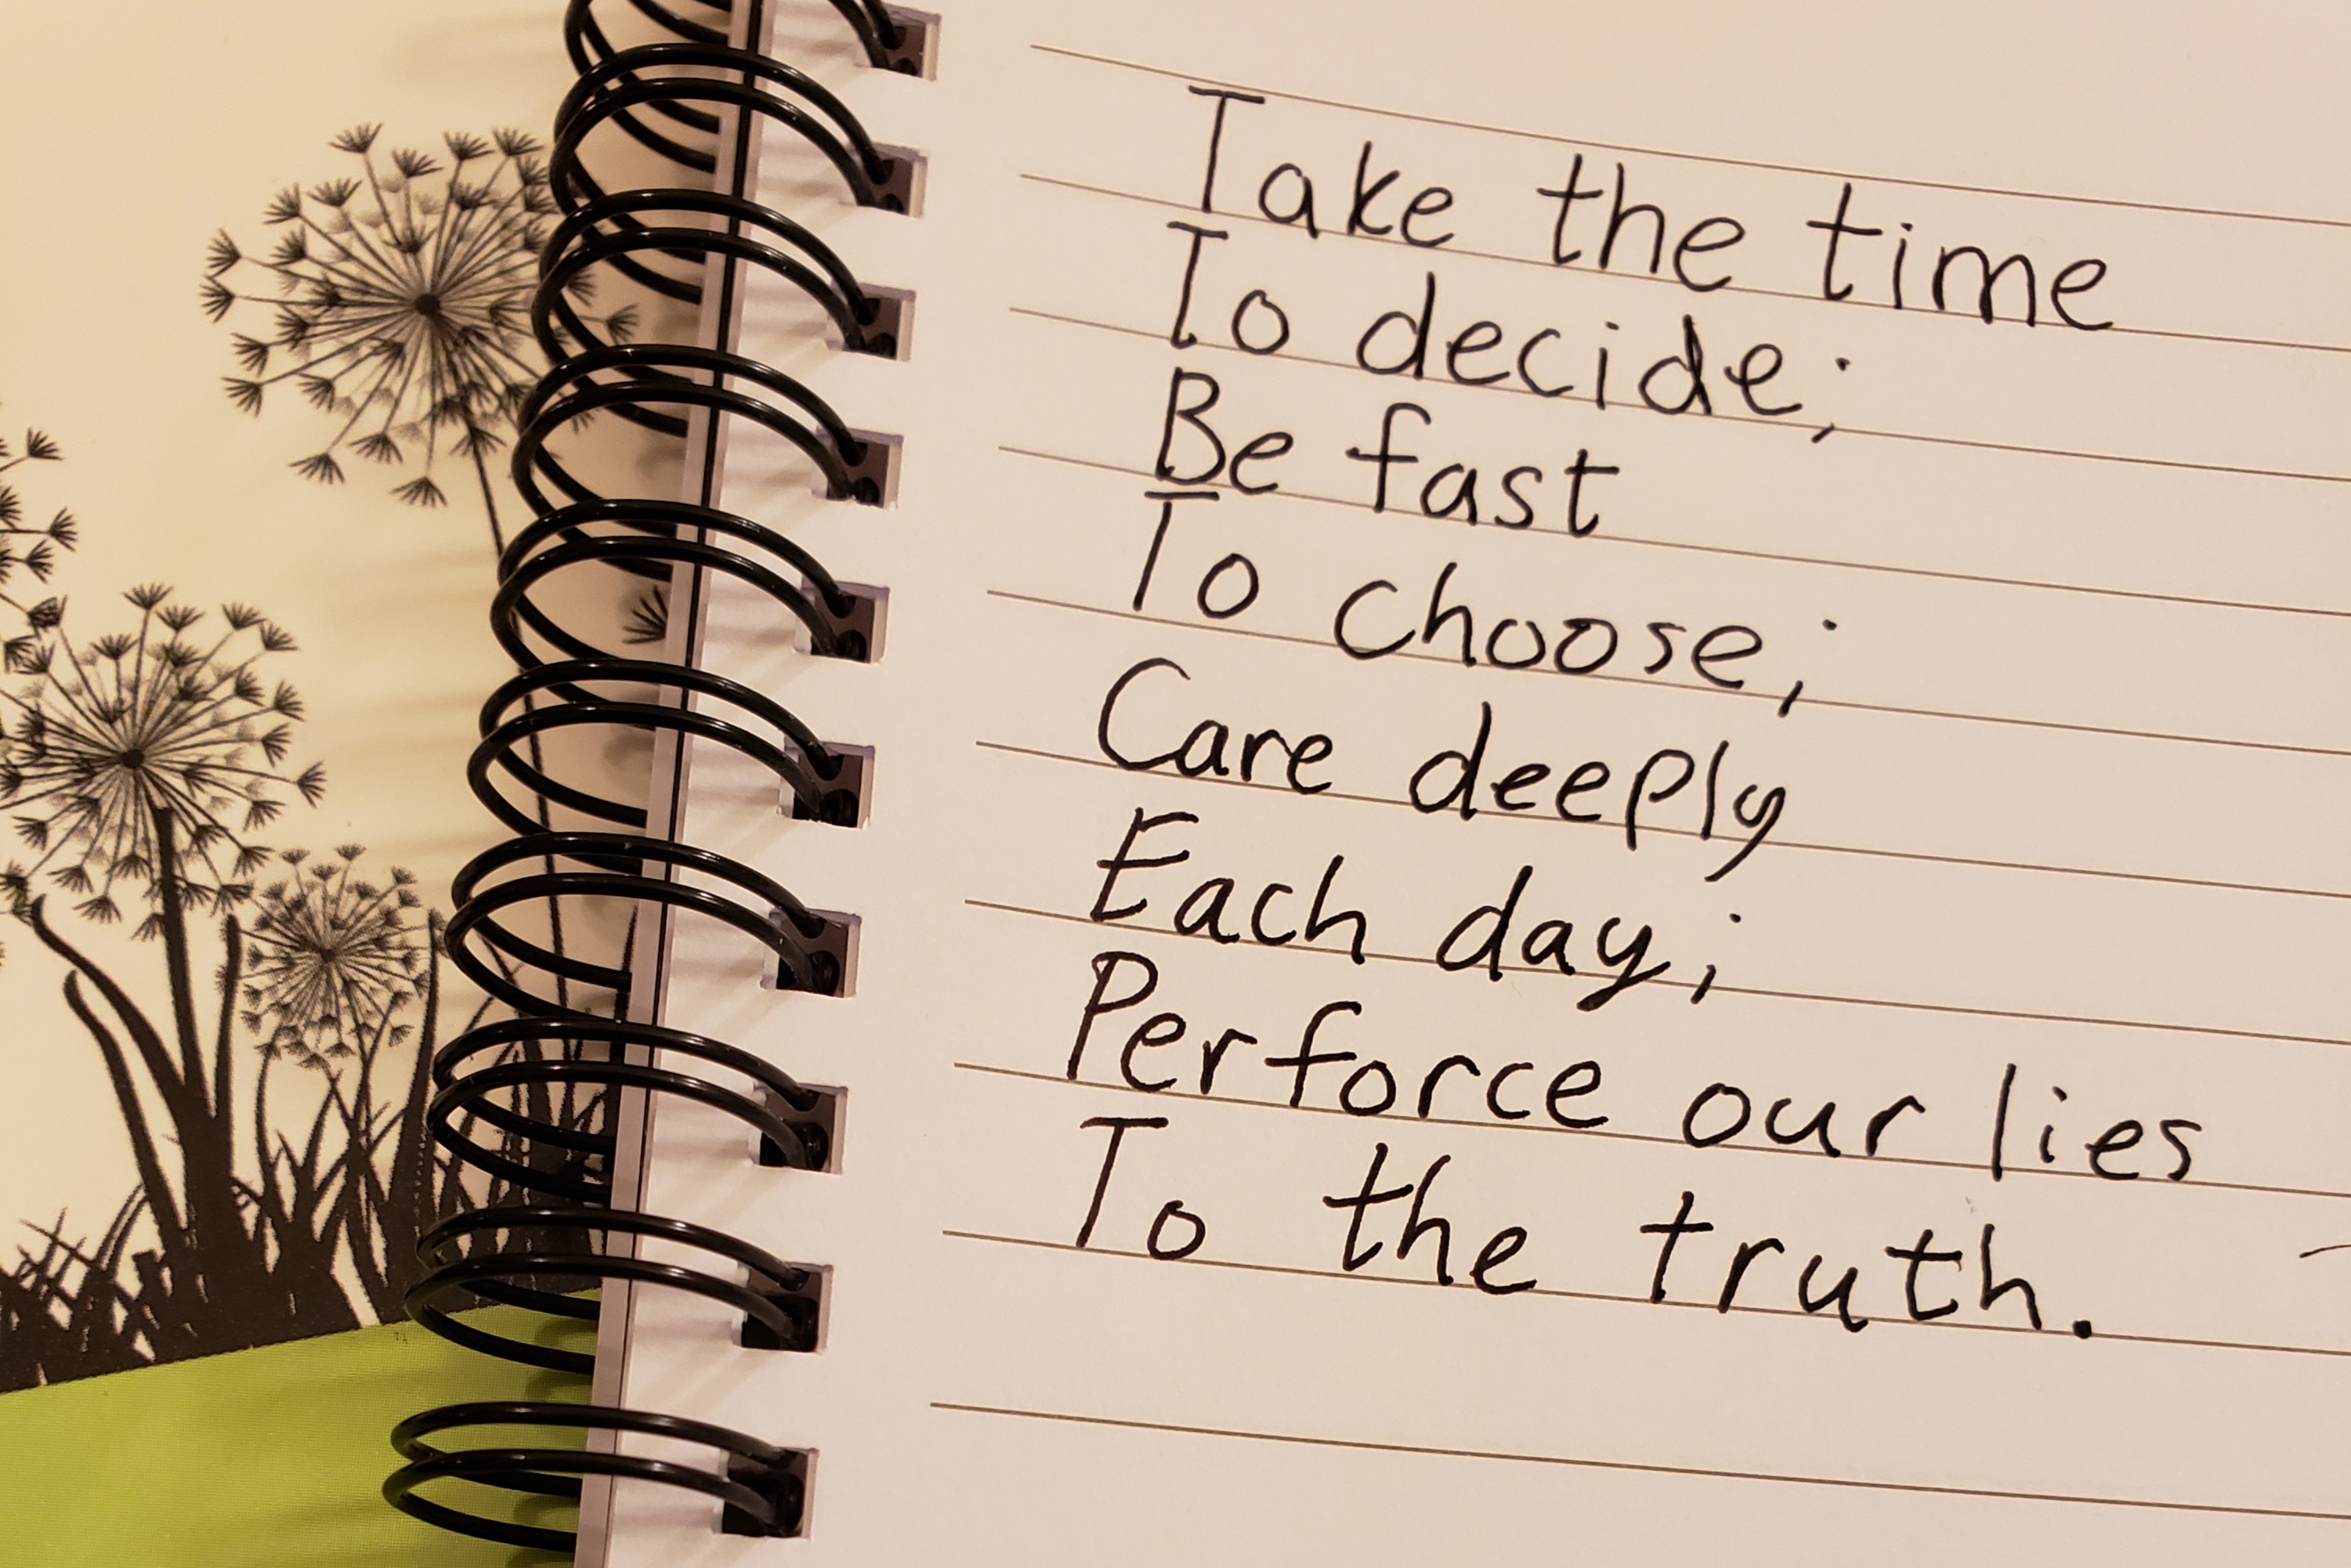 Take the time
To decide;
Be fast
To choose;
Care deeply
Each day;
Perforce our lies
To the truth.